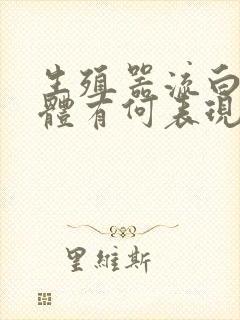 生殖器流白
體有何表現
里維斯